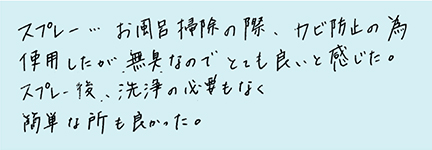 スプレー… お風呂掃除の際、カビ防止の為
使用したが、無臭なのでとても良いと感じた。
スプレー後、洗浄の必要もなく
簡単な所も良かった。